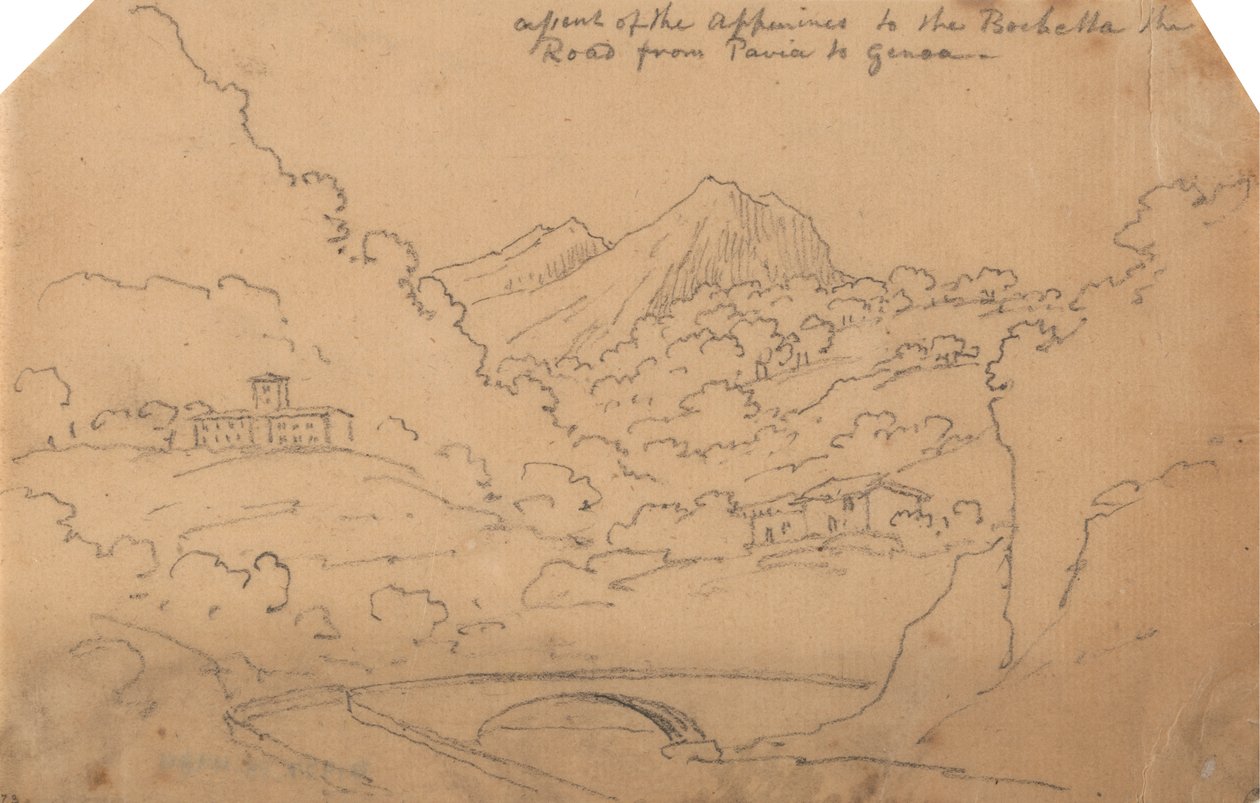 assent of the Appenines to the Bochetta the
Road from Pavia to Genoa
73